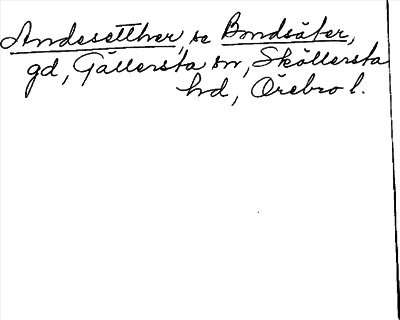 Andesetther, se Bondsäter,
gd, Gällersta sn, Sköllersta
hd, Örebro l.